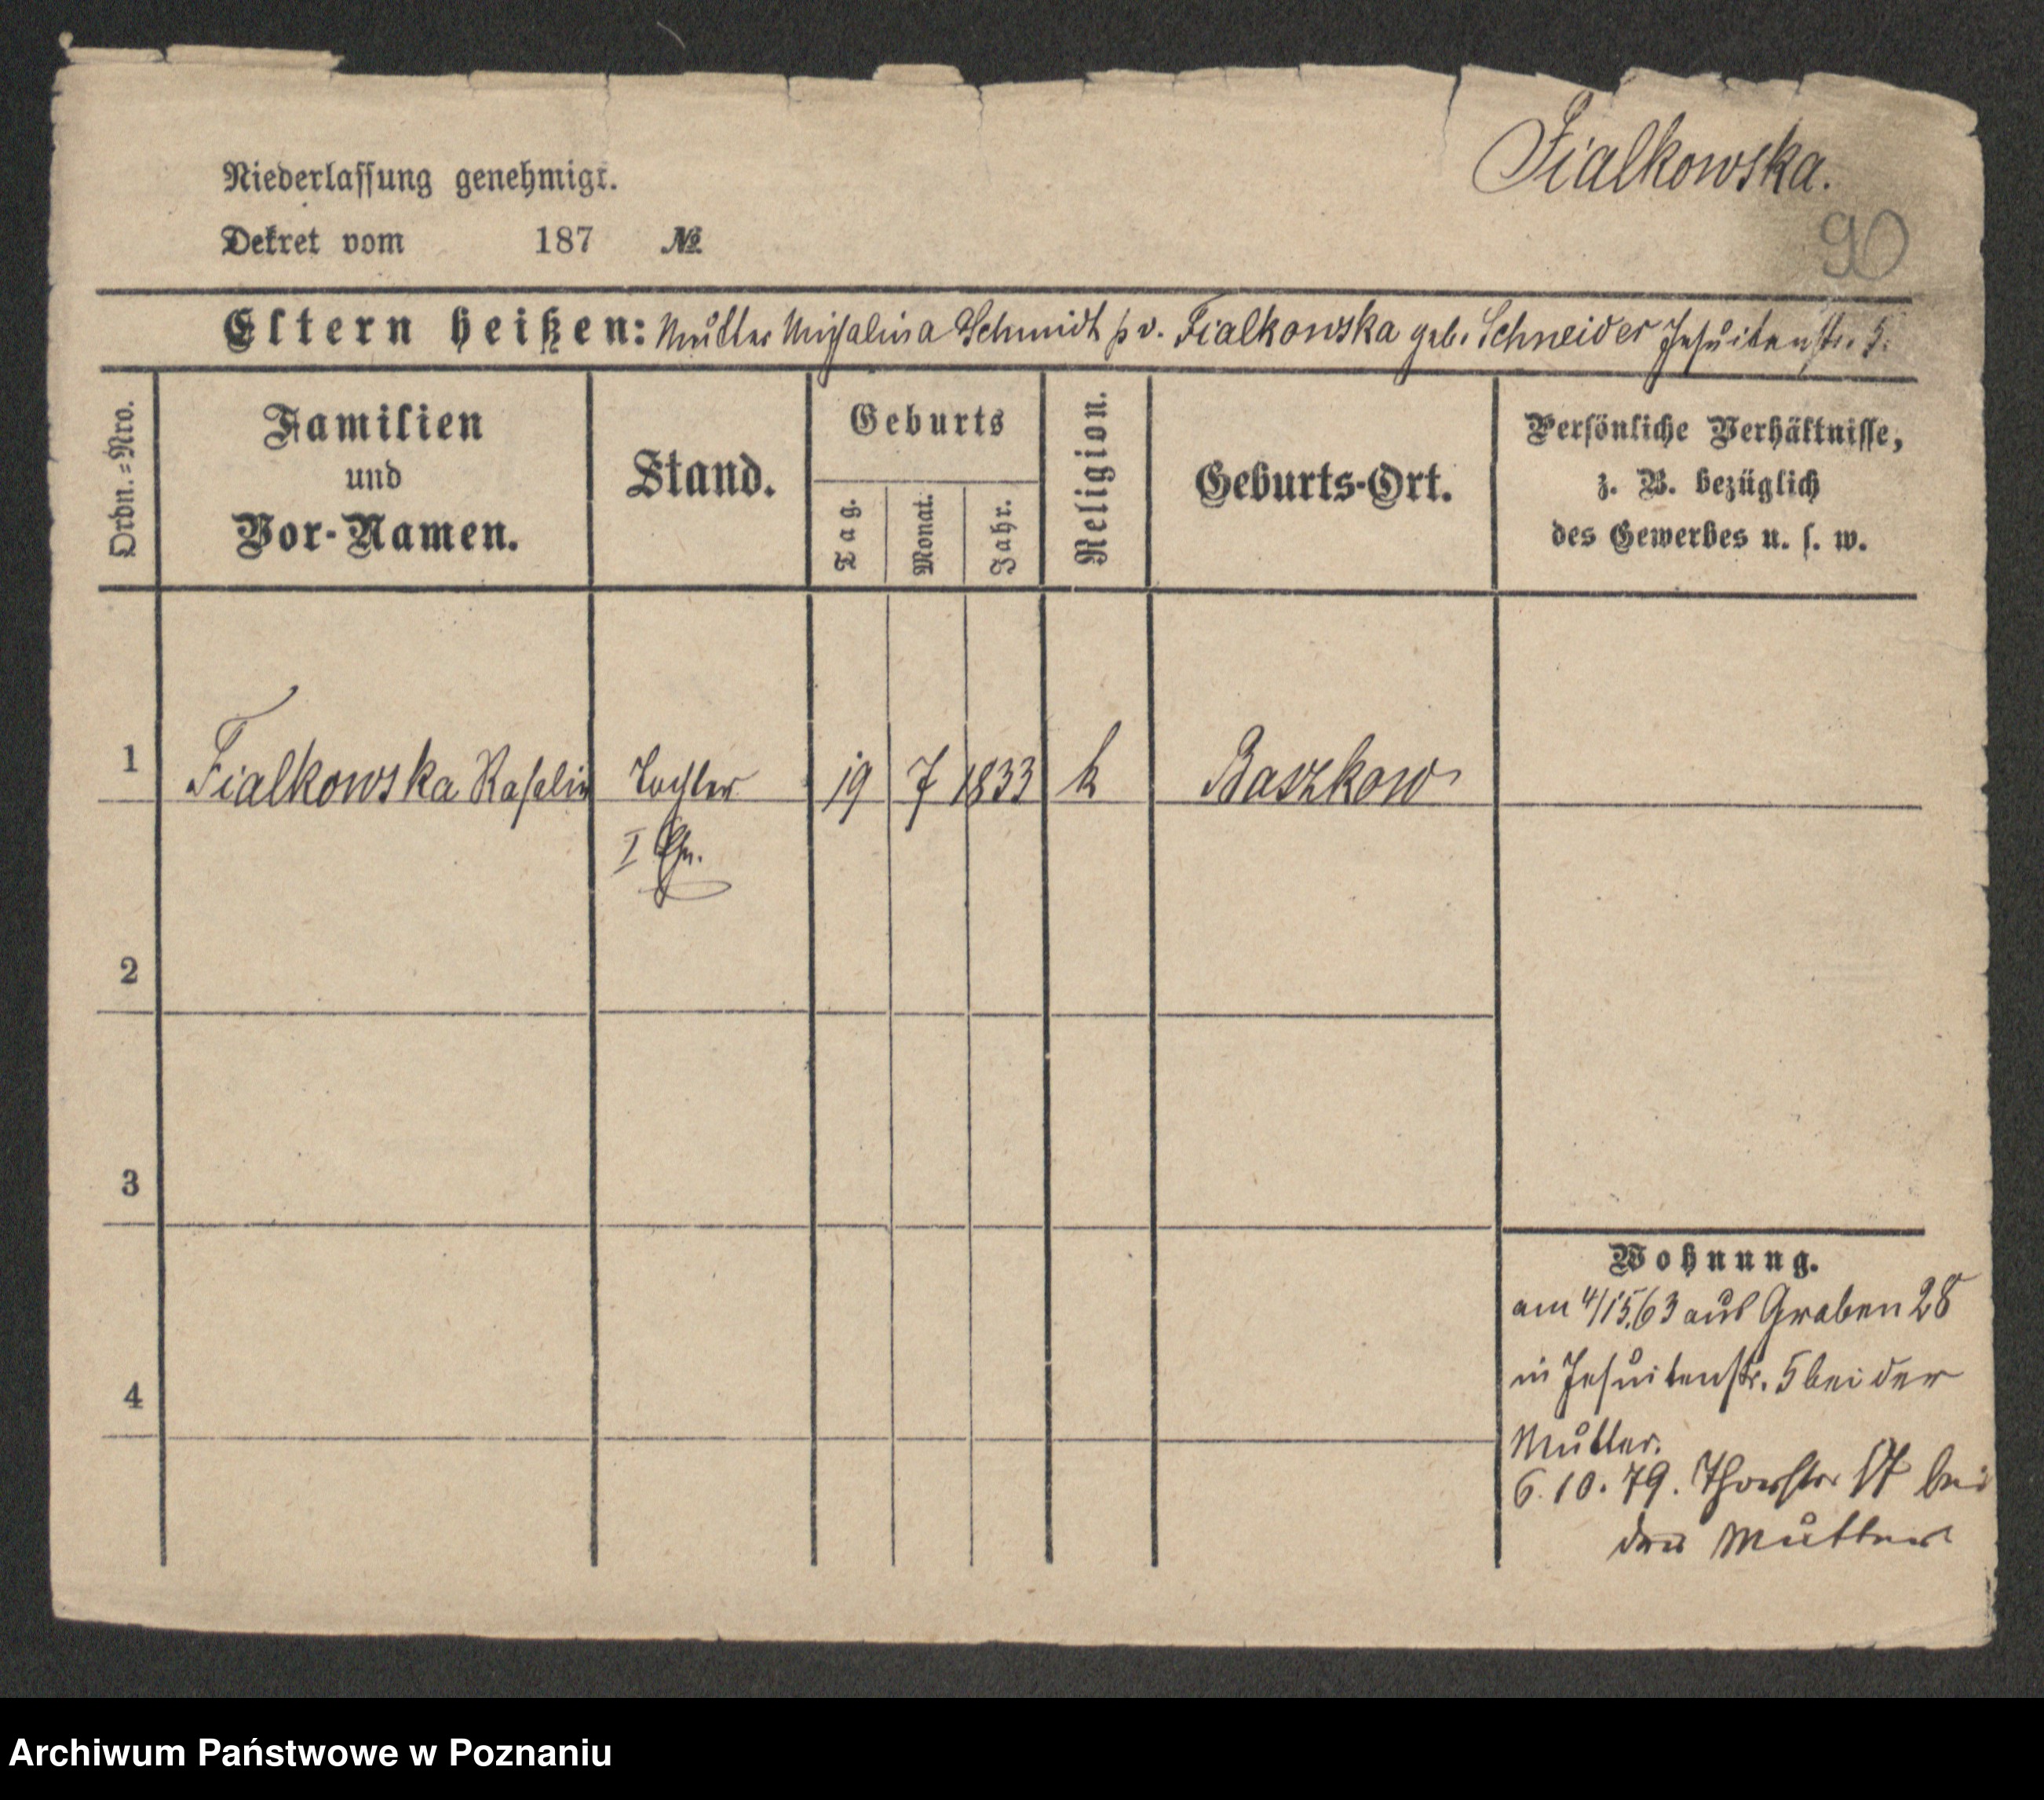 Fialkowska.
90
Niederlassung genehmigt.
Dekret vom 187 №
Eltern heißen: Mutter Schmidt p. v. Fialkowska geb. Schneider Jesuitenstr. 5.
Ordn.=Nro.
Familien
und
Vor-Namen.
Stand.
Geburts
Tag.
Monat.
Jahr.
Religion.
Geburts-Ort.
Persönliche Verhältnisse,
z. B. bezüglich
des Gewerbes u. s. w.
1 Fialkowska Tochter 19 7 1833 k Baszkow
I
2
3
4
Wohnung.
am 4/15.63 aus Graben 28
in Jesuitenstr. 5 bei der
Mutter.
6. 10. 79. Thorstr 17 bei
der Mutter
Archiwum Państwowe w Poznaniu